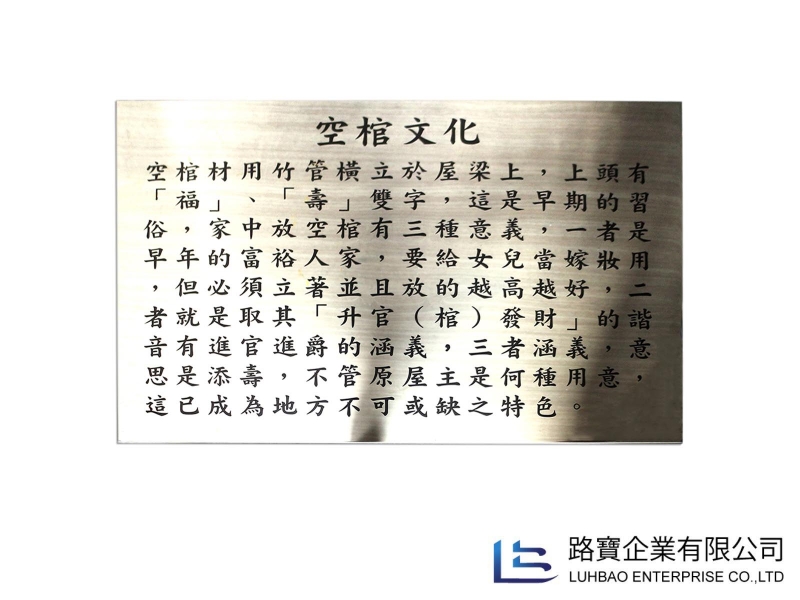 空棺文化
空棺材用竹管橫立於屋梁上，上頭有
「福」、「壽」雙字，這是早期的習
俗，家中放空棺有三種意義，一者是
早年的富裕人家，要給女兒當嫁妝用
，但必須立著並且放的越高越好，二
者就是取其「升官（棺）發財」的諧
音有進官進爵的涵義，三者涵義，意
思是添壽，不管原屋主是何種用意，
這已成為地方不可或缺之特色。
路寶企業有限公司
LUHBAO ENTERPRISE CO.,LTD